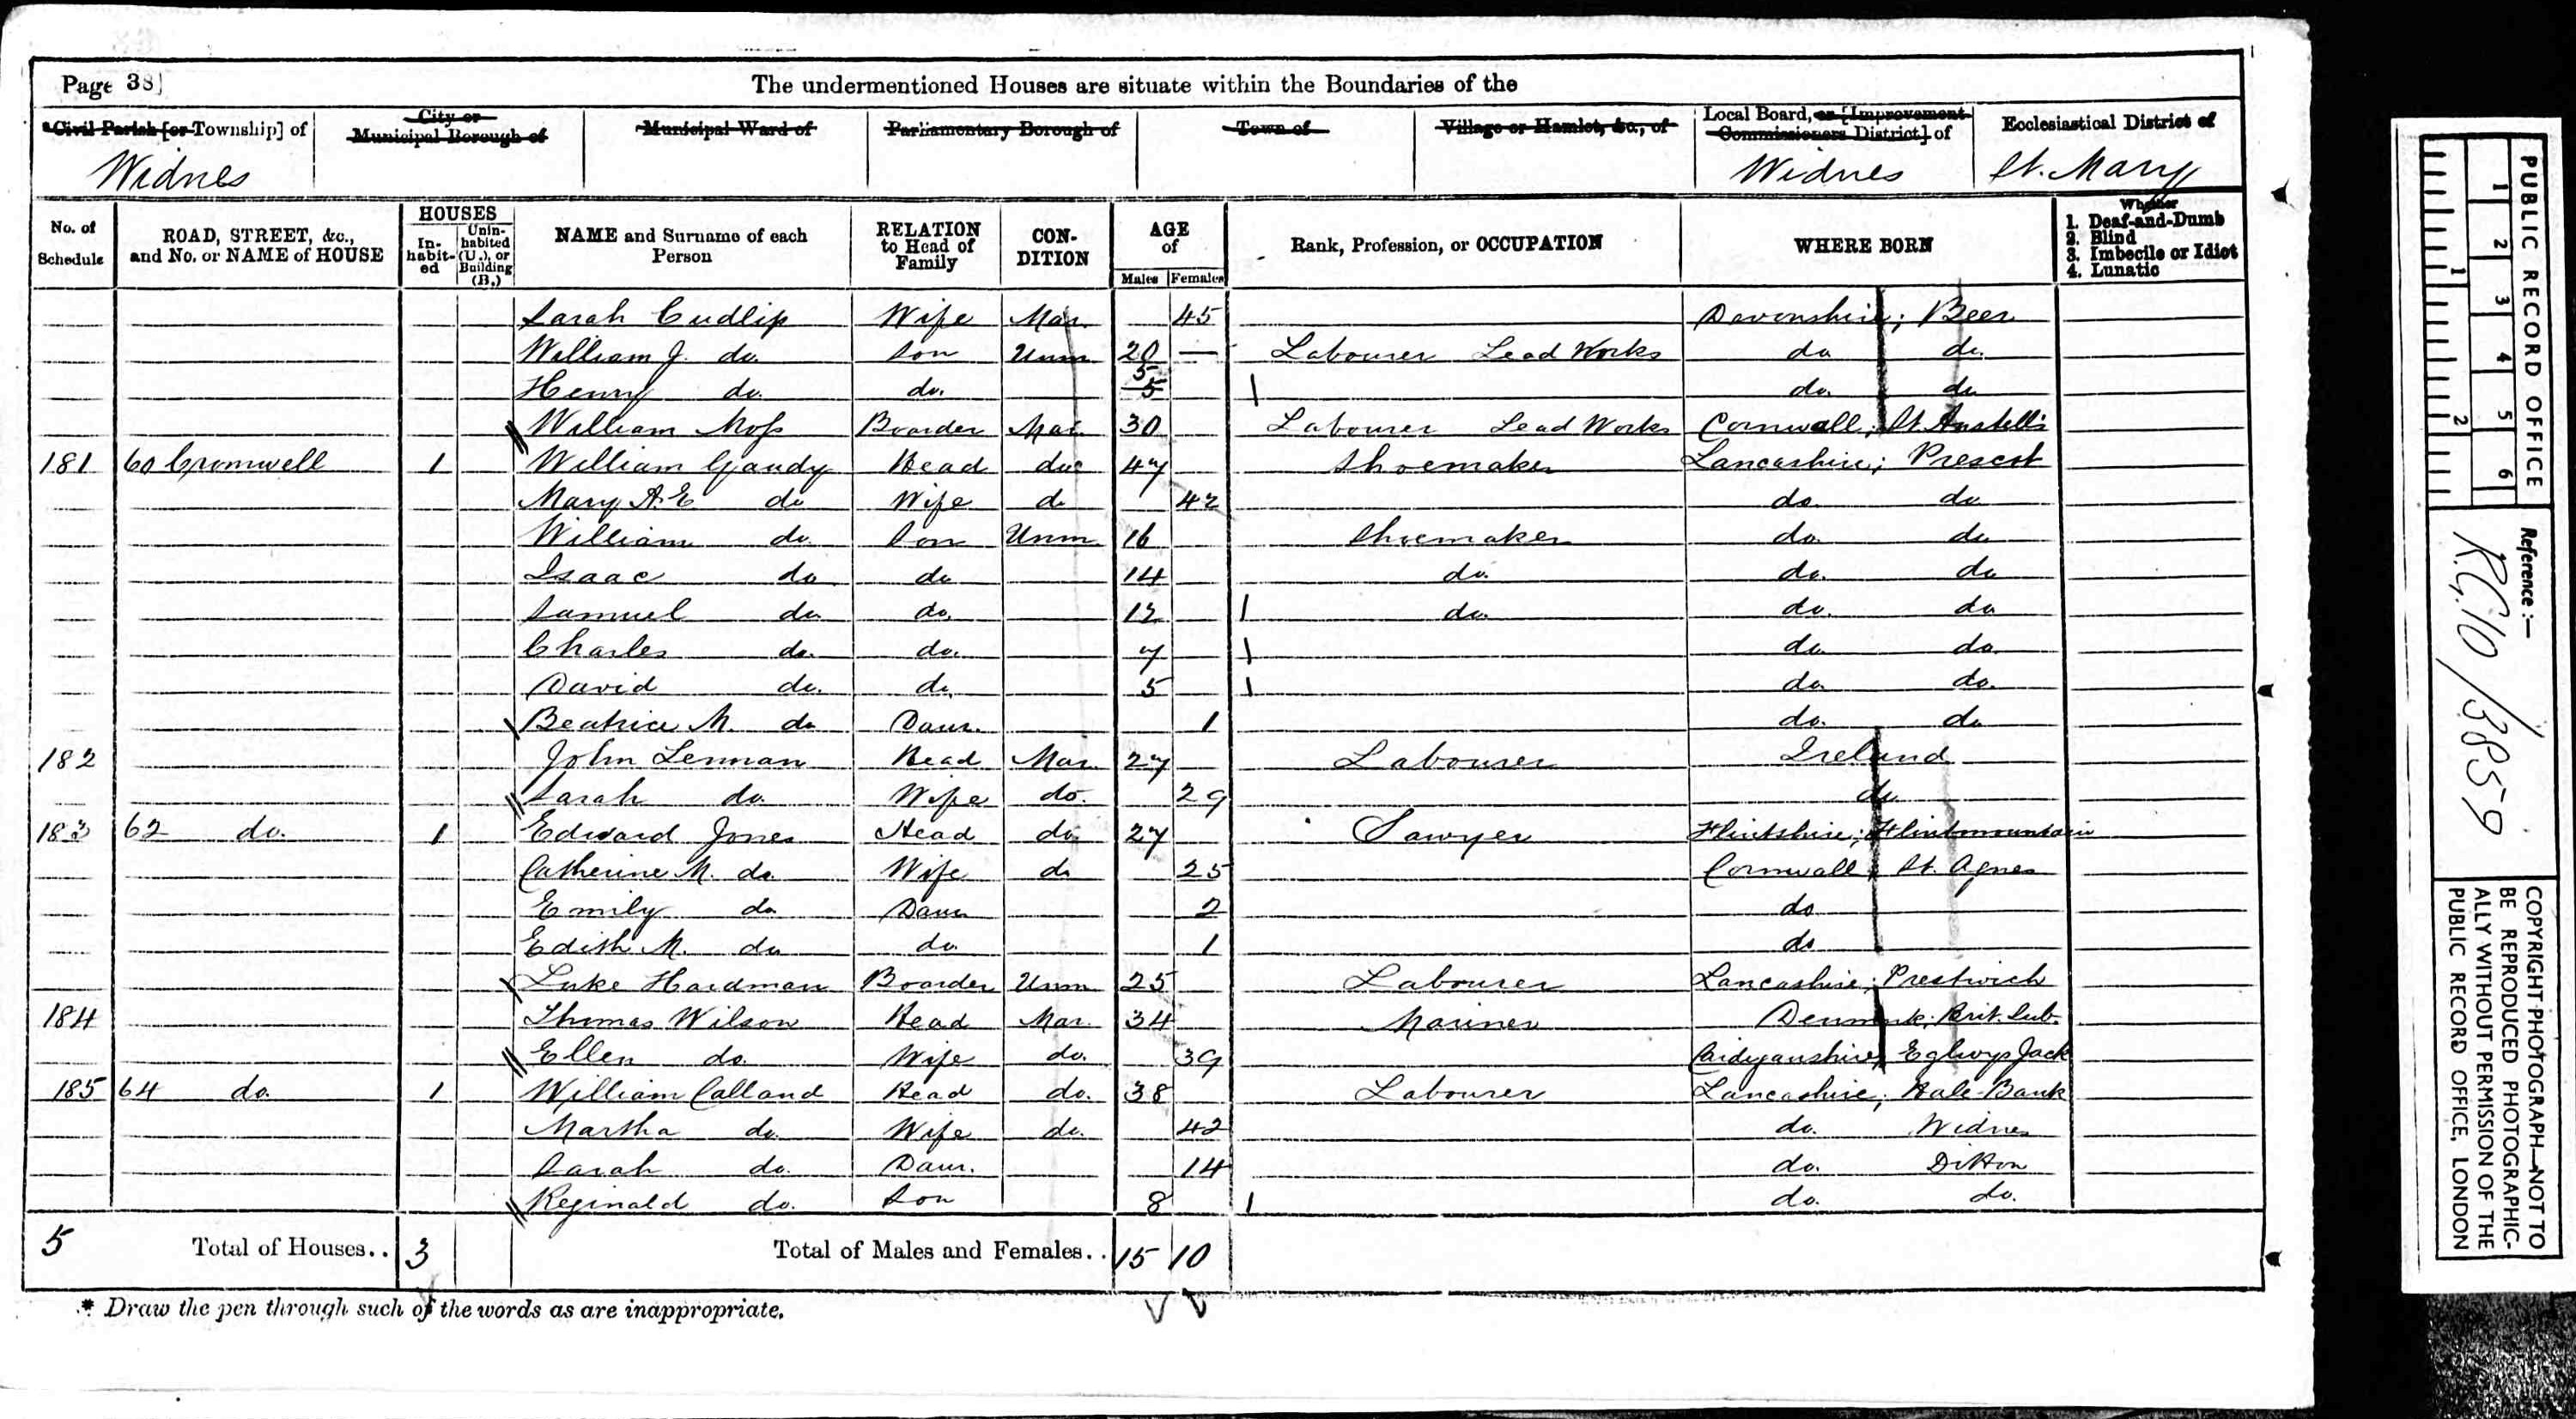 Page 38] The undermentioned Houses are situate within the Boundaries of the
*Civil Parish [or Township] of City or Municipal Borough of Municipal Ward of Parliamentary Borough of Town of Village or Hamlet, &c., of Local Board, or [Improvement Commissioners District] of Ecclesiastical District of
Widnes Widnes St. Mary
No. of Schedule ROAD, STREET, &c., and No. or NAME of HOUSE HOUSES In-habit-ed Unin-habited (U.), or Building (B.) NAME and Surname of each Person RELATION to Head of Family CON-DITION AGE of Males Females Rank, Profession, or OCCUPATION WHERE BORN Whether 1. Deaf-and-Dumb 2. Blind 3. Imbecile or Idiot 4. Lunatic
Sarah Cudlip Wife Mar. 45 Devonshire; Beer
William J. do. Son Unm 20 — Labourer Lead Works do do.
Henry do. do. 5 5 1 do. do
William Moss Boarder Mar. 30 Labourer Lead Works Cornwall; St. Austells
181 60 Cromwell 1 William Gandy Head do 47 Shoemaker Lancashire; Prescot
Mary A. E do Wife do 42 do. do
William do. Son Unm 16 Shoemaker do. do
Isaac do do 14 do. do. do
Samuel do. do. 12 1 do. do. do
Charles do. do. 7 1 do. do.
David do. do. 5 1 do. do.
Beatrice M. do Daur. 1 do. do
182 John Lennan Head Mar. 27 Labourer Ireland
Sarah do. Wife do. 29 do.
183 62 do. 1 Edward Jones Head do. 27 Sawyer Flintshire; Flintmountain
Catherine M. do. Wife do 25 Cornwall; St. Agnes
Emily do Daur 2 do
Edith M. do. do. 1 do
Luke Hardman Boarder Unm 25 Labourer Lancashire; Prestwich
184 Thomas Wilson Head Mar. 34 Mariner Denmark; Brit. Sub.
Ellen do. Wife do. 39 Cardiganshire;
185 64 do. 1 William Calland Head do. 38 Labourer Lancashire; Hale-Bank
Martha do. Wife do. 42 do. Widnes
Sarah do. Daur. 14 do. Ditton
Reginald do. Son 8 1 do. do.
5 Total of Houses.. 3 Total of Males and Females.. 15 10
* Draw the pen through such of the words as are inappropriate.
PUBLIC RECORD OFFICE
1 2 3 4 5 6
1 2
Reference :—
R.G. 10 / 3859
COPYRIGHT PHOTOGRAPH—NOT TO
BE REPRODUCED PHOTOGRAPHIC-
ALLY WITHOUT PERMISSION OF THE
PUBLIC RECORD OFFICE, LONDON